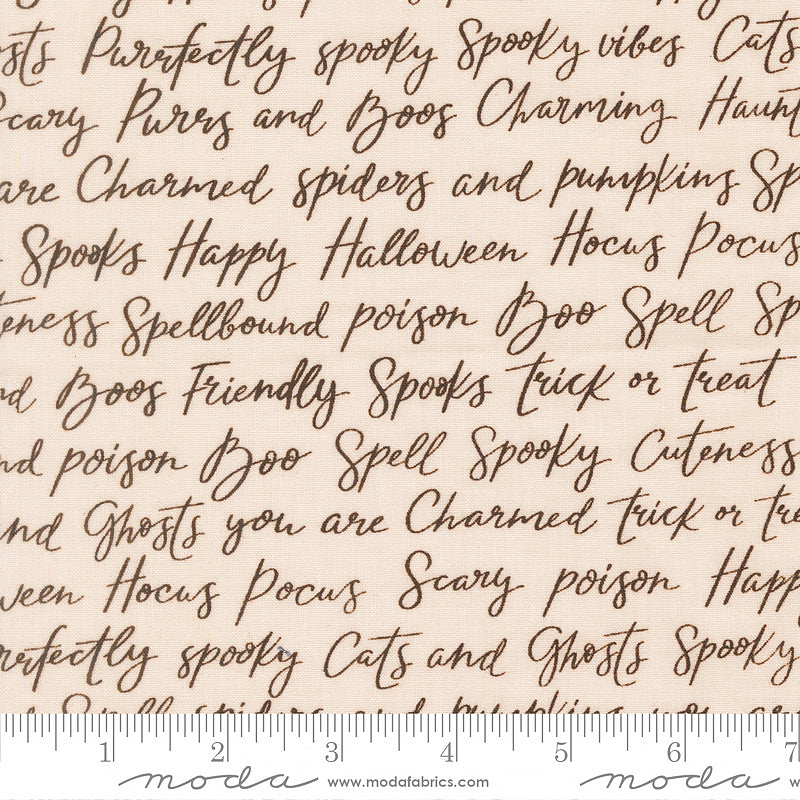 Purrfectly spooky Spooky vibes Cats
Scary Purrs and Boos Charming Haunt
are Charmed spiders and pumpkins Sp
Spooks Happy Halloween Hocus Pocus
teness Spellbound poison Boo Spell Sp
nd Boos Friendly Spooks trick or treat
nd poison Boo Spell Spooky Cuteness
and Ghosts you are Charmed trick or tre
ween Hocus Pocus Scary poison Happ
rrfectly spooky Cats and Ghosts Spooky
Spell spiders and pumpkins you are
1 2 3 4 5 6 7
moda www.modafabrics.com moda